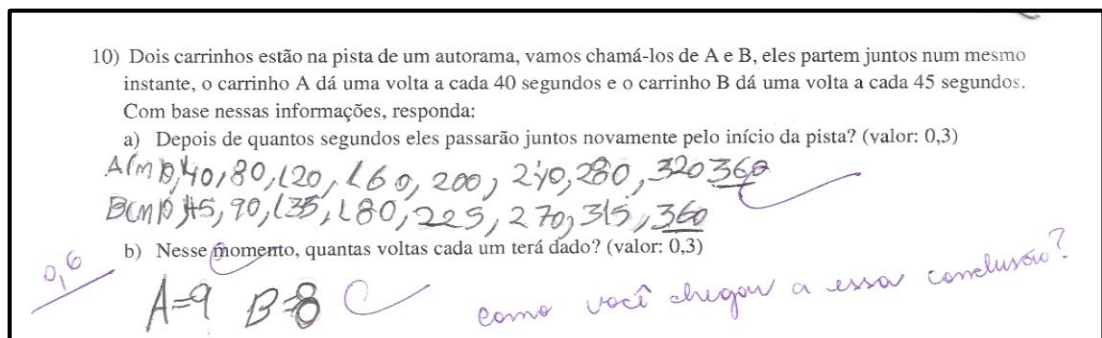 10) Dois carrinhos estão na pista de um autorama, vamos chamá-los de A e B, eles partem juntos num mesmo
instante, o carrinho A dá uma volta a cada 40 segundos e o carrinho B dá uma volta a cada 45 segundos.
Com base nessas informações, responda:
a) Depois de quantos segundos eles passarão juntos novamente pelo início da pista? (valor: 0,3)
A(m) 0, 40, 80, 120, 160, 200, 240, 280, 320 360
B(m) 0, 45, 90, 135, 180, 225, 270, 315, 360
b) Nesse momento, quantas voltas cada um terá dado? (valor: 0,3)
0,6
A=9 B=8 C
como você chegou a essa conclusão?